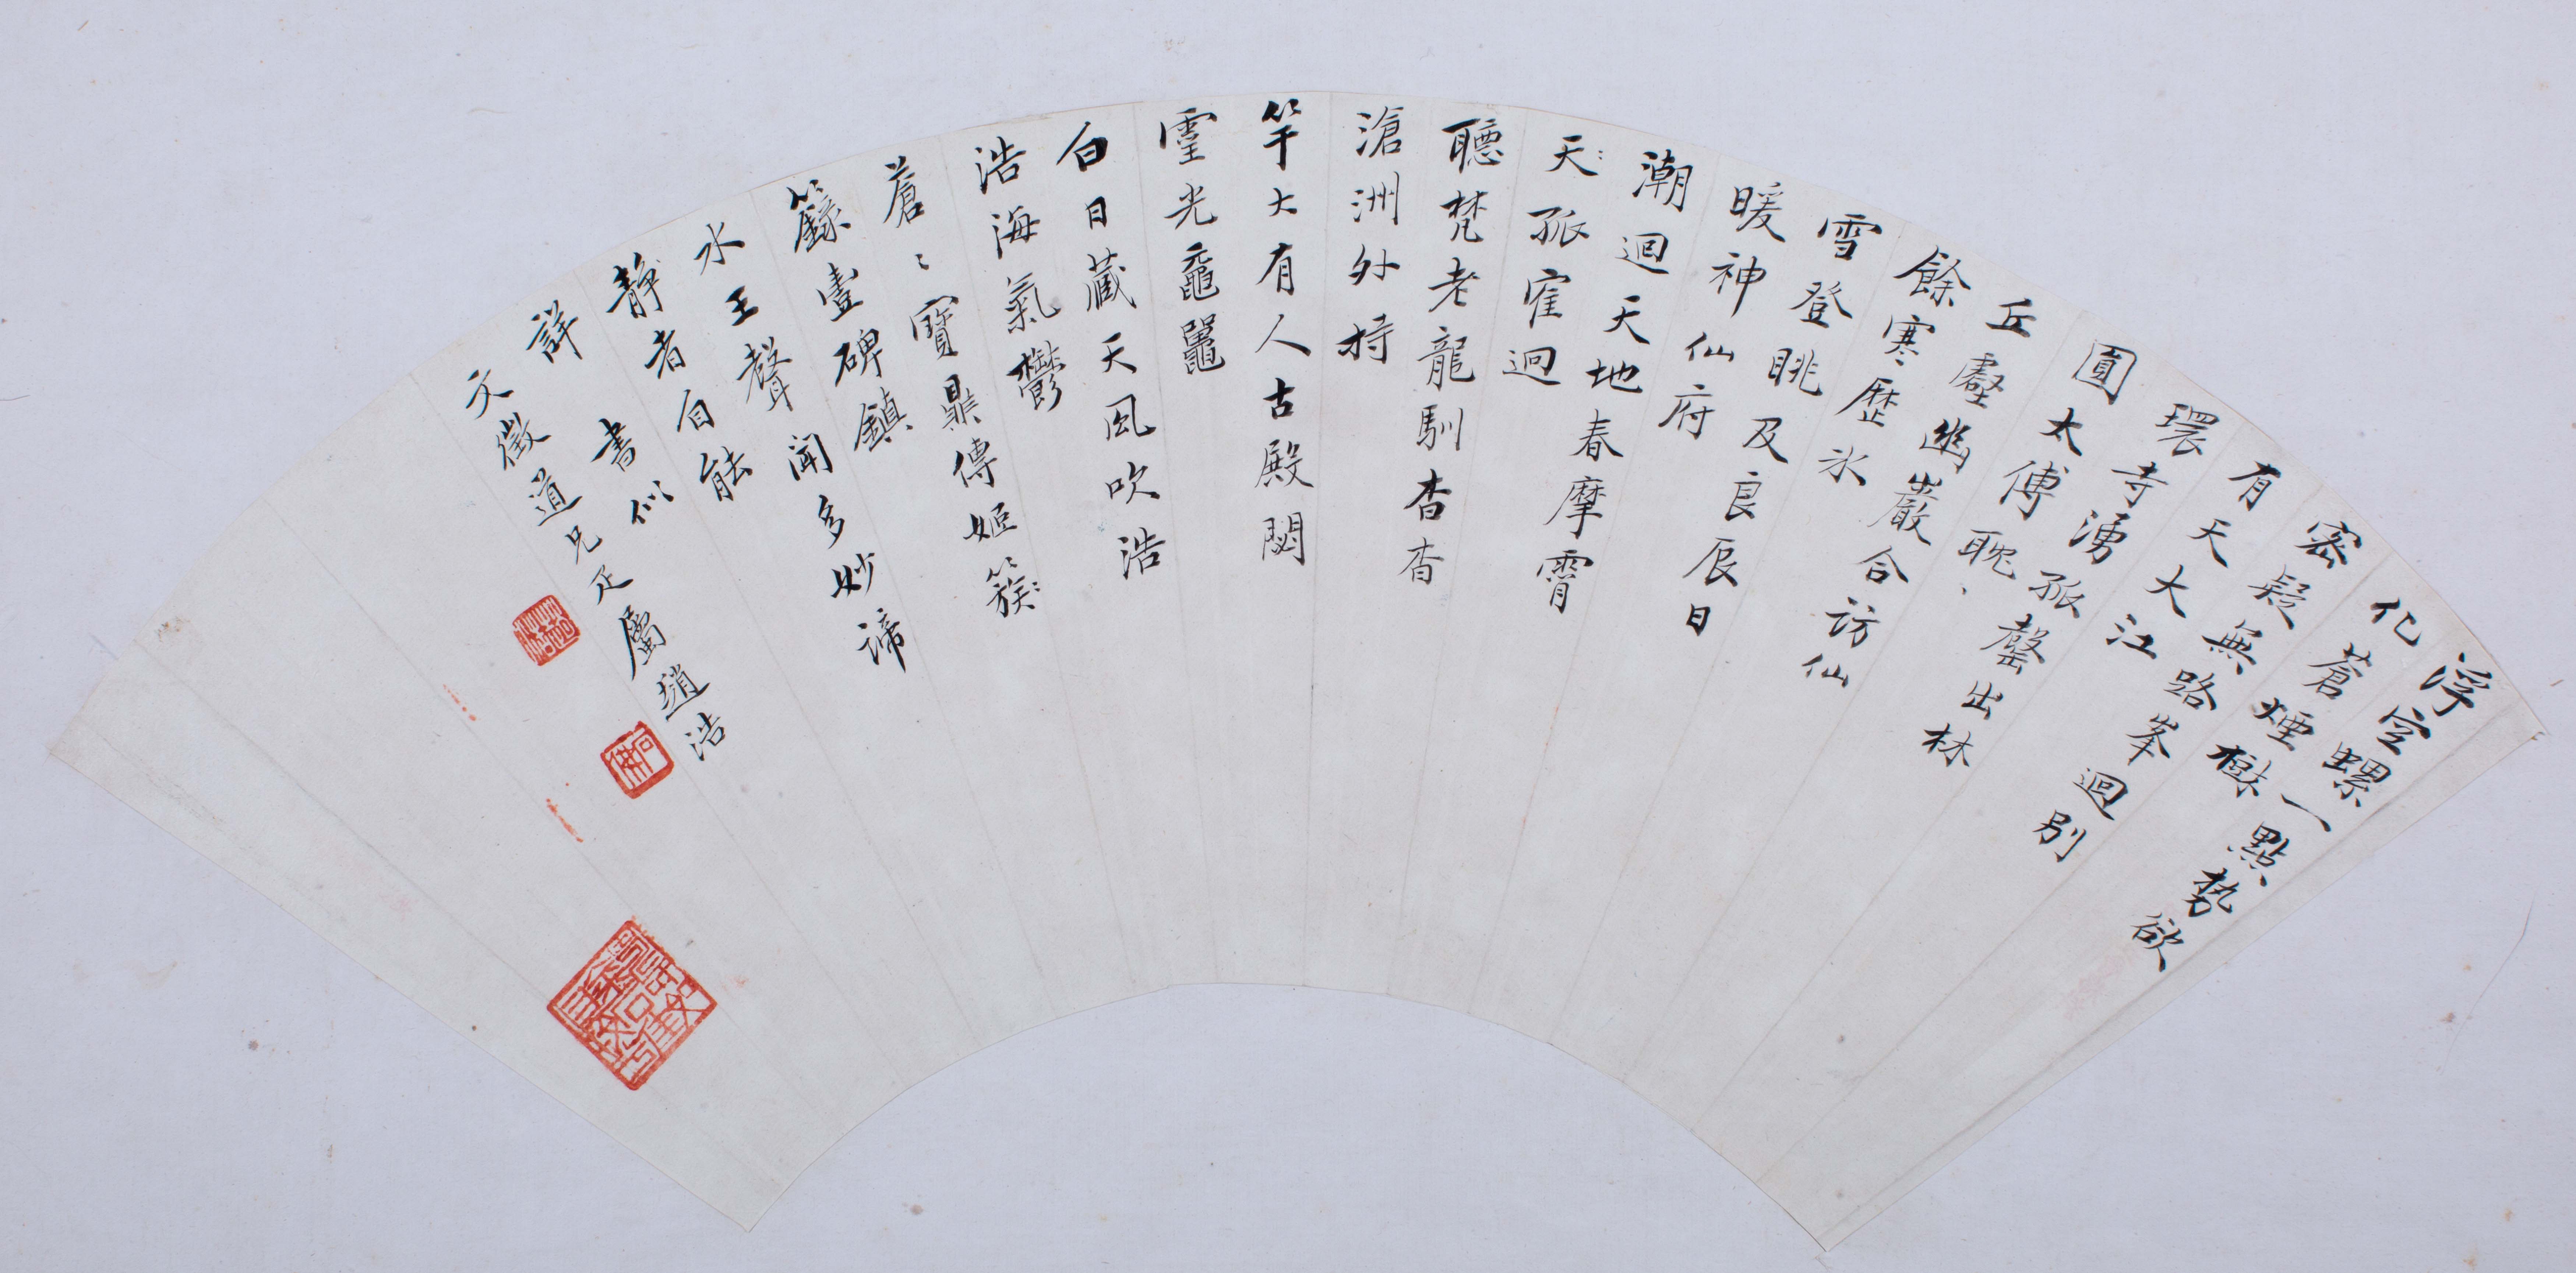 浮空螺一點勢欲
化蒼煙樾
密疑無路峯迴別
有天大江
環寺湧孤罄出林
圓太傅耽
丘壑幽巖合訪仙
餘寒歷氷
雪登眺及良辰日
暖神仙府
潮迴天地春摩霄
天孤寉迥
聽梵老龍馴杳杳
滄洲外持
竿大有人古殿閟
霊光黿鼉
白日藏天風吹浩
浩海氣鬱
蒼〻寶鼎傳姬簇
籙豐碑鎮
水王聲聞多妙諦
靜者自能
詳 書似
文徵道兄正屬趙浩